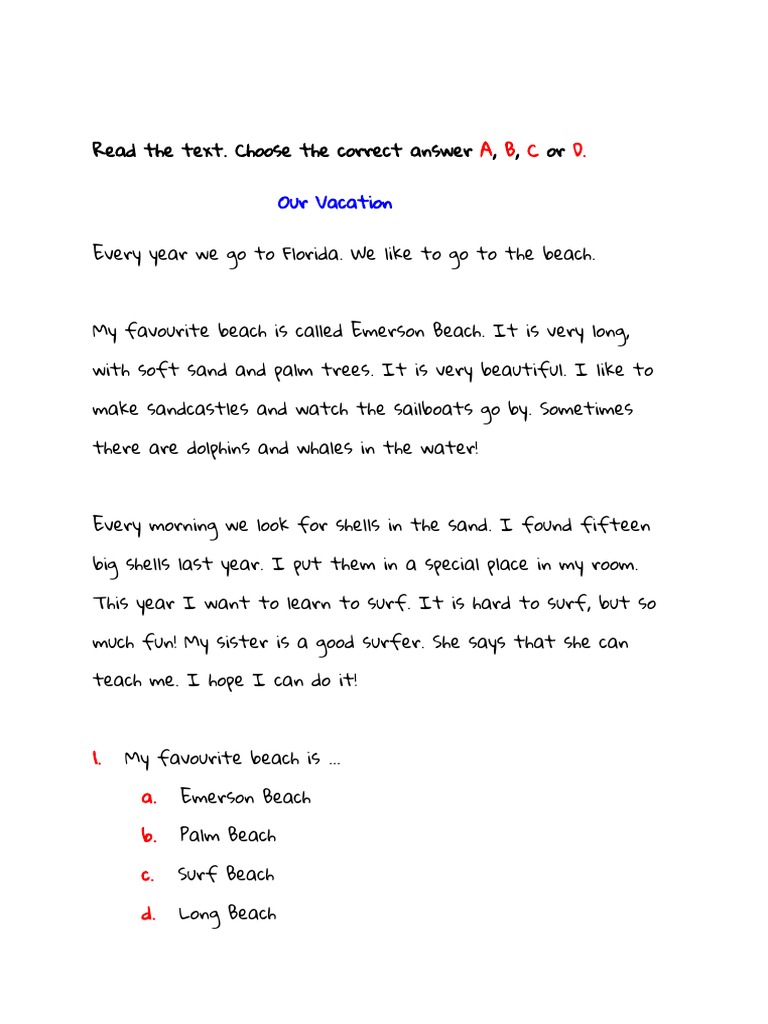 Read the text. Choose the correct answer A, B, C or D.
Our Vacation
Every year we go to Florida. We like to go to the beach.
My favourite beach is called Emerson Beach. It is very long,
with soft sand and palm trees. It is very beautiful. I like to
make sandcastles and watch the sailboats go by. Sometimes
there are dolphins and whales in the water!
Every morning we look for shells in the sand. I found fifteen
big shells last year. I put them in a special place in my room.
This year I want to learn to surf. It is hard to surf, but so
much fun! My sister is a good surfer. She says that she can
teach me. I hope I can do it!
1. My favourite beach is ...
a. Emerson Beach
b. Palm Beach
c. Surf Beach
d. Long Beach